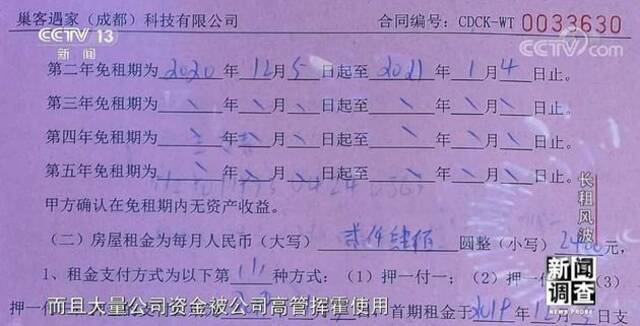 巢客遇家（成都）科技有限公司 合同编号：CDCK-WT 0033630
CCTV 13
新闻
央视网
CCTV.com
第二年免租期为2020年12月5日起至2021年1月4日止。
第三年免租期为 年 月 日起至 年 月 日止。
第四年免租期为 年 月 日起至 年 月 日止。
第五年免租期为 年 月 日起至 年 月 日止。
甲方确认在免租期内无资产收益。
（二）房屋租金为每月人民币（大写）贰仟肆佰圆整（小写）2400元，
1、租金支付方式为以下第(1)种方式：（1）押一付一；（2）押一付 （3）
押一付 首期租金于2019年12月 日支
而且大量公司资金被公司高管挥霍使用
长租风波
新闻调查
NEWS PROBE